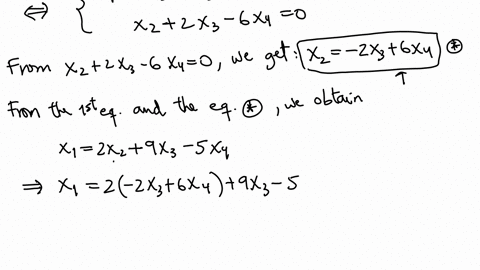 ⇔ {
x₂+2x₃−6x₄=0
From x₂+2x₃−6x₄=0, we get: x₂=−2x₃+6x₄ ⊛
From the 1st eq. and the eq. ⊛, we obtain
x₁=2x₂+9x₃−5x₄
⇒ x₁=2(−2x₃+6x₄)+9x₃−5